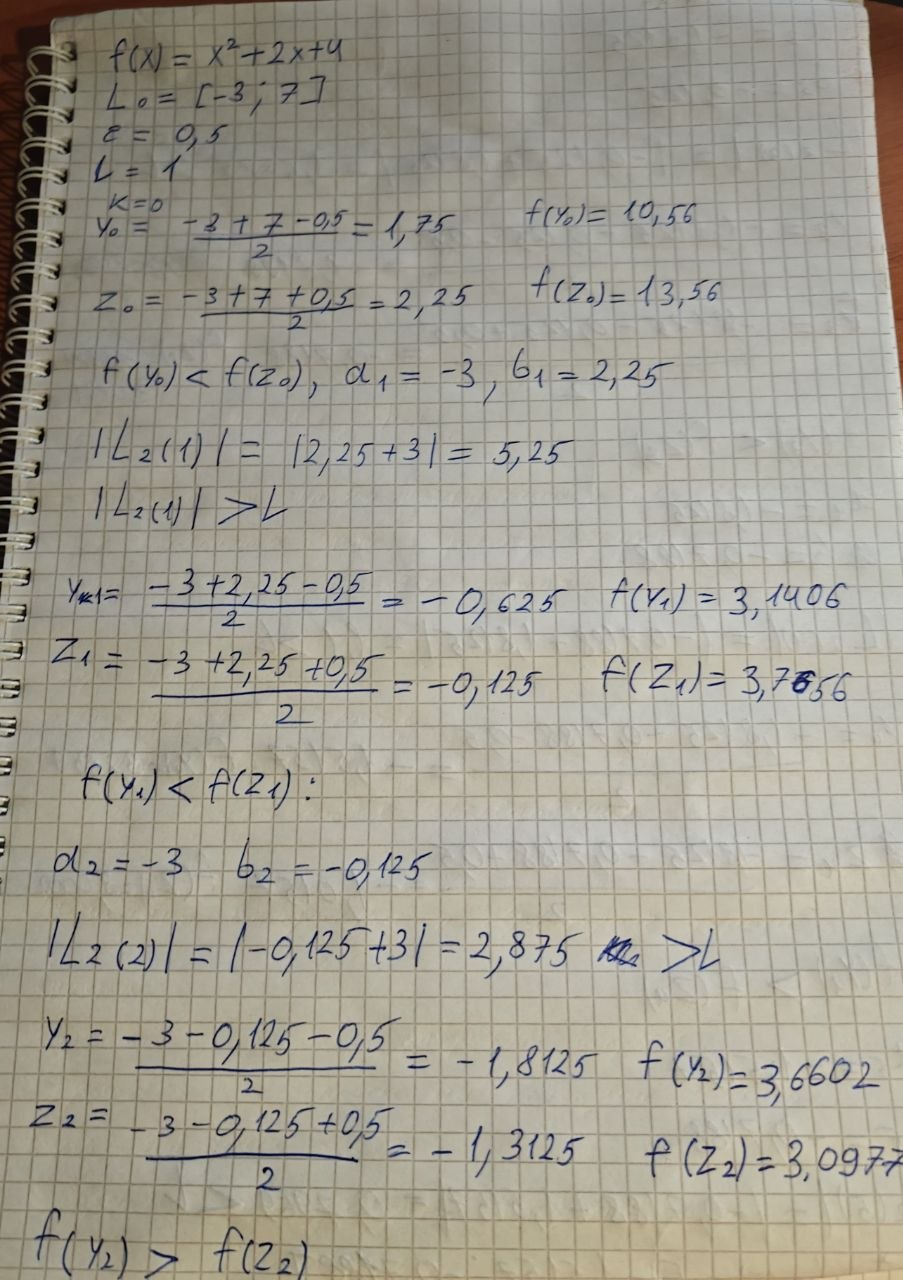 f(x) = x² + 2x + 4
L₀ = [-3 ; 7]
ε = 0,5
L = 1
K = 0
Y₀ = (-3 + 7 - 0,5)/2 = 1,75 f(Y₀) = 10,56
Z₀ = (-3 + 7 + 0,5)/2 = 2,25 f(Z₀) = 13,56
f(Y₀) < f(Z₀), a₁ = -3, b₁ = 2,25
|L₂(1)| = |2,25 + 3| = 5,25
|L₂(1)| > L
Y₁ = (-3 + 2,25 - 0,5)/2 = -0,625 f(Y₁) = 3,1406
Z₁ = (-3 + 2,25 + 0,5)/2 = -0,125 f(Z₁) = 3,7656
f(Y₁) < f(Z₁) :
a₂ = -3 b₂ = -0,125
|L₂(2)| = |-0,125 + 3| = 2,875 > L
Y₂ = (-3 - 0,125 - 0,5)/2 = -1,8125 f(Y₂) = 3,6602
Z₂ = (-3 - 0,125 + 0,5)/2 = -1,3125 f(Z₂) = 3,0977
f(Y₂) > f(Z₂)